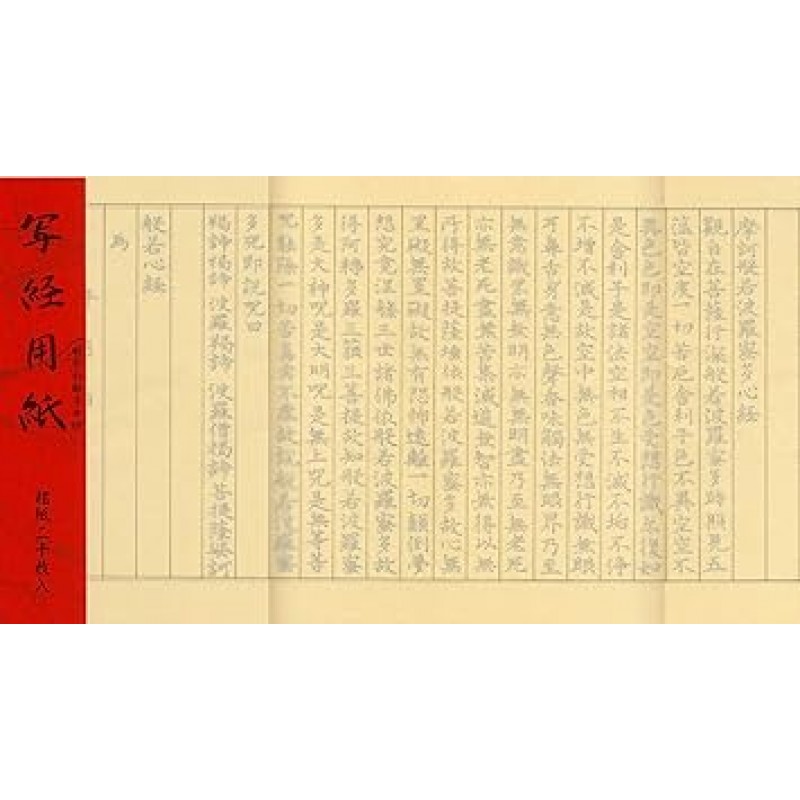 摩訶般若波羅蜜多心経
觀自在菩薩行深般若波羅蜜多時照見五
蘊皆空度一切苦厄舍利子色不異空空不
異色色即是空空即是色受想行識亦復如
是舍利子是諸法空相不生不滅不垢不浄
不増不減是故空中無色無受想行識無眼
耳鼻舌身意無色聲香味觸法無眼界乃至
無意識界無無明亦無無明盡乃至無老死
亦無老死盡無苦集滅道無智亦無得以無
所得故菩提薩埵依般若波羅蜜多故心無
罣礙無罣礙故無有恐怖遠離一切顛倒夢
想究竟涅槃三世諸佛依般若波羅蜜多故
得阿耨多羅三藐三菩提故知般若波羅蜜
多是大神呪是大明呪是無上呪是無等等
呪能除一切苦真實不虚故説般若波羅蜜
多呪即説呪曰
羯諦羯諦 波羅羯諦 波羅僧羯諦 菩提薩婆訶
般若心経
為
写経用紙
楮紙二十枚入